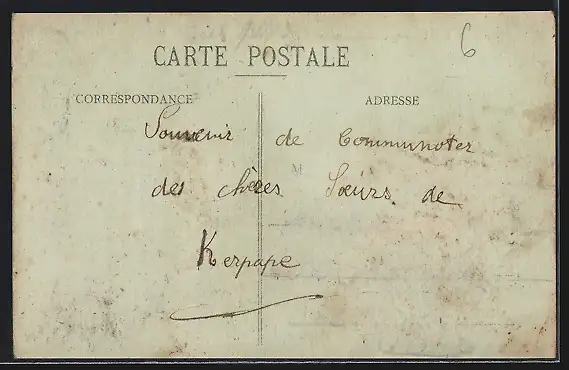 6
CARTE POSTALE
CORRESPONDANCE
ADRESSE
Souvenir de Communoter
des chères Sœurs de
Kerpape